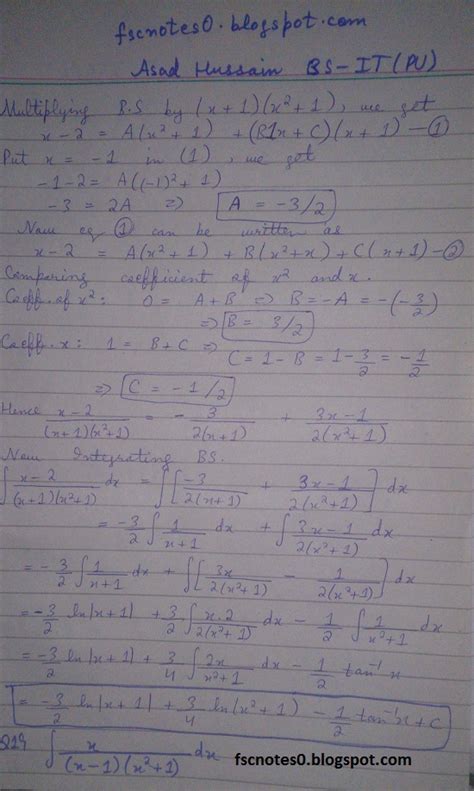 fscnotes0.blogspot.com
Asad Hussain BS-IT(PU)
Multiplying B.S by (x+1)(x²+1), we get
x-2 = A(x²+1) + (B1x+C)(x+1) —①
Put x = -1 in (1), we get
-1-2 = A((-1)²+1)
-3 = 2A ⇒ A = -3/2
Now eq ① can be written as
x-2 = A(x²+1) + B(x²+x) + C(x+1) —②
Comparing coefficient of x² and x.
Coeff. of x²: 0 = A+B ⇒ B = -A = -(-3/2)
⇒ B = 3/2
Coeff. x: 1 = B+C ⇒
C = 1-B = 1-3/2 = -1/2
⇒ C = -1/2
Hence x-2/(x+1)(x²+1) = -3/2(x+1) + 3x-1/2(x²+1)
Now Integrating BS.
∫ x-2/(x+1)(x²+1) dx = ∫[-3/2(x+1) + 3x-1/2(x²+1)] dx
= -3/2 ∫ 1/x+1 dx + ∫ 3x-1/2(x²+1) dx
= -3/2 ∫ 1/x+1 dx + ∫[3x/2(x²+1) - 1/2(x²+1)] dx
= -3/2 ln|x+1| + 3/2 ∫ x.2/2(x²+1) dx - 1/2 ∫ 1/x²+1 dx
= -3/2 ln|x+1| + 3/4 ∫ 2x/x²+1 dx - 1/2 tan⁻¹x
= -3/2 ln|x+1| + 3/4 ln(x²+1) - 1/2 tan⁻¹x + C
Q19 ∫ x/(x-1)(x²+1) dx
fscnotes0.blogspot.com